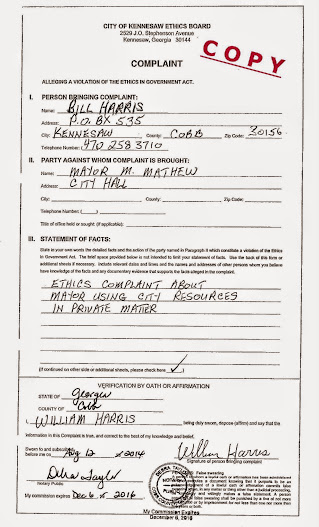 CITY OF KENNESAW ETHICS BOARD
2529 J.O. Stephenson Avenue
Kennesaw, Georgia 30144
COPY
COMPLAINT
ALLEGING A VIOLATION OF THE ETHICS IN GOVERNMENT ACT.
I. PERSON BRINGING COMPLAINT:
Name: BILL HARRIS
Address: P.O. BX 535
City: KENNESAW County: COBB Zip Code: 30156
Telephone Number: 470 258 3710
II. PARTY AGAINST WHOM COMPLAINT IS BROUGHT:
Name: MAYOR M. MATHEW
Address: CITY HALL
City: County: Zip Code:
Telephone Number ( )
Title of office held or sought (if applicable):
III. STATEMENT OF FACTS:
State in your own words the detailed facts and the action of the party named in Paragraph II which constitute a violation of the Ethics
in Government Act. The brief space provided below is not intended to limit your statement of facts. Use the back of this form or
additional sheets if necessary. Include relevant dates and times and the names and addresses of other persons whom you believe
have knowledge of the facts and any documentary evidence that supports the facts alleged in the complaint.
ETHICS COMPLAINT ABOUT
MAYOR USING CITY RESOURCES
IN PRIVATE MATTER
(If continued on other side or additional sheets, please check here ✓)
VERIFICATION BY OATH OR AFFIRMATION
STATE OF Georgia
COUNTY OF Cobb
I WILLIAM HARRIS being duly sworn, depose (affirm) and say that the
information in this Complaint is true, and correct to the best of my knowledge and belief.
Sworn to and subscribed
before me on Aug 12 2014 William Harris
Signature of person bringing complaint
Debra Taylor
Notary Public
False swearing
My commission expires Dec 6 2016
My Commission Expires
December 6, 2016